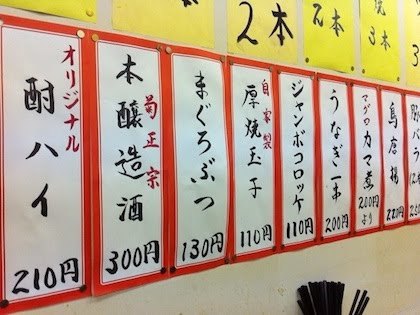 2本
2本
3本
オリジナル
酎ハイ
210円
菊正宗
本醸造酒
300円
まぐろぶつ
130円
自家製
厚焼玉子
110円
ジャンボコロッケ
110円
うなぎ一本
200円
マグロカマ煮
200円
より
鳥唐揚
220円